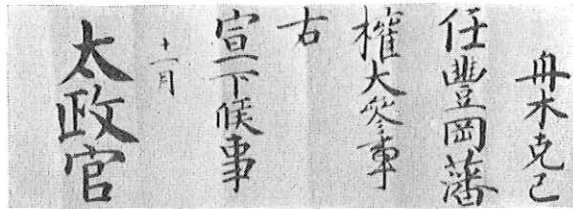 舟木克己
任豐岡藩
權大參事
右
宣下候事
十一月
太政官